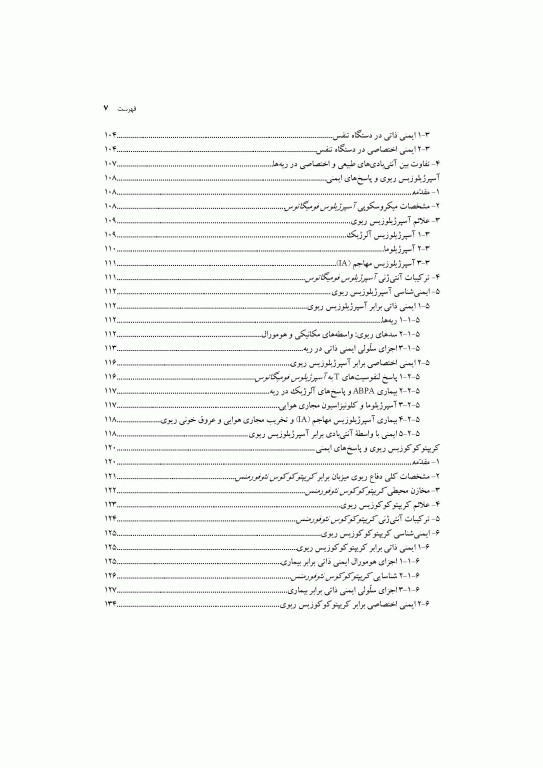 فهرست ۷
۳-۱ ایمنی ذاتی در دستگاه تنفس ۱۰۴
۳-۲ ایمنی اختصاصی در دستگاه تنفس ۱۰۴
۴- تفاوت بین آنتی‌بادی‌های طبیعی و اختصاصی در ریه‌ها ۱۰۷
آسپرژیلوزیس ریوی و پاسخ‌های ایمنی ۱۰۸
۱- مقدمه ۱۰۸
۲- مشخصات میکروسکوپی آسپرژیلوس فومیگاتوس ۱۰۸
۳- علائم آسپرژیلوزیس ریوی ۱۰۹
۳-۱ آسپرژیلوزیس آلرژیک ۱۰۹
۳-۲ آسپرژیلوما ۱۱۰
۳-۳ آسپرژیلوزیس مهاجم (IA) ۱۱۱
۴- ترکیبات آنتی‌ژنی آسپرژیلوس فومیگاتوس ۱۱۱
۵- ایمنی‌شناسی آسپرژیلوزیس ریوی ۱۱۲
۵-۱ ایمنی ذاتی برابر آسپرژیلوزیس ریوی ۱۱۲
۵-۱-۱ ریه‌ها ۱۱۲
۵-۱-۲ سدهای ریوی: واسطه‌های مکانیکی و هومورال ۱۱۲
۵-۱-۳ اجزای سلّولی ایمنی ذاتی در ریه ۱۱۳
۵-۲ ایمنی اختصاصی برابر آسپرژیلوزیس ریوی ۱۱۶
۵-۲-۱ پاسخ لنفوسیت‌های T به آسپرژیلوس فومیگاتوس ۱۱۶
۵-۲-۲ بیماری ABPA و پاسخ‌های آلرژیک در ریه ۱۱۷
۵-۲-۳ آسپرژیلوما و کلونیزاسیون مجاری هوایی ۱۱۷
۵-۲-۴ بیماری آسپرژیلوزیس مهاجم (IA) و تخریب مجاری هوایی و عروق خونی ریوی ۱۱۸
۵-۲-۵ ایمنی با واسطهٔ آنتی‌بادی برابر آسپرژیلوزیس ریوی ۱۱۸
کریپتوکوکوزیس ریوی و پاسخ‌های ایمنی ۱۲۰
۱- مقدمه ۱۲۰
۲- مشخصات کلی دفاع ریوی میزبان برابر کریپتوکوکوس نئوفورمنس ۱۲۱
۳- مخازن محیطی کریپتوکوکوس نئوفورمنس ۱۲۲
۴- علائم کریپتوکوکوزیس ریوی ۱۲۳
۵- ترکیبات آنتی‌ژنی کریپتوکوکوس نئوفورمنس ۱۲۴
۶- ایمنی‌شناسی کریپتوکوکوزیس ریوی ۱۲۵
۶-۱ ایمنی ذاتی برابر کریپتوکوکوزیس ریوی ۱۲۵
۶-۱-۱ اجزای هومورال ایمنی ذاتی برابر بیماری ۱۲۵
۶-۱-۲ شناسایی کریپتوکوکوس نئوفورمنس ۱۲۶
۶-۱-۳ اجزای سلّولی ایمنی ذاتی برابر بیماری ۱۲۷
۶-۲ ایمنی اختصاصی برابر کریپتوکوکوزیس ریوی ۱۳۴